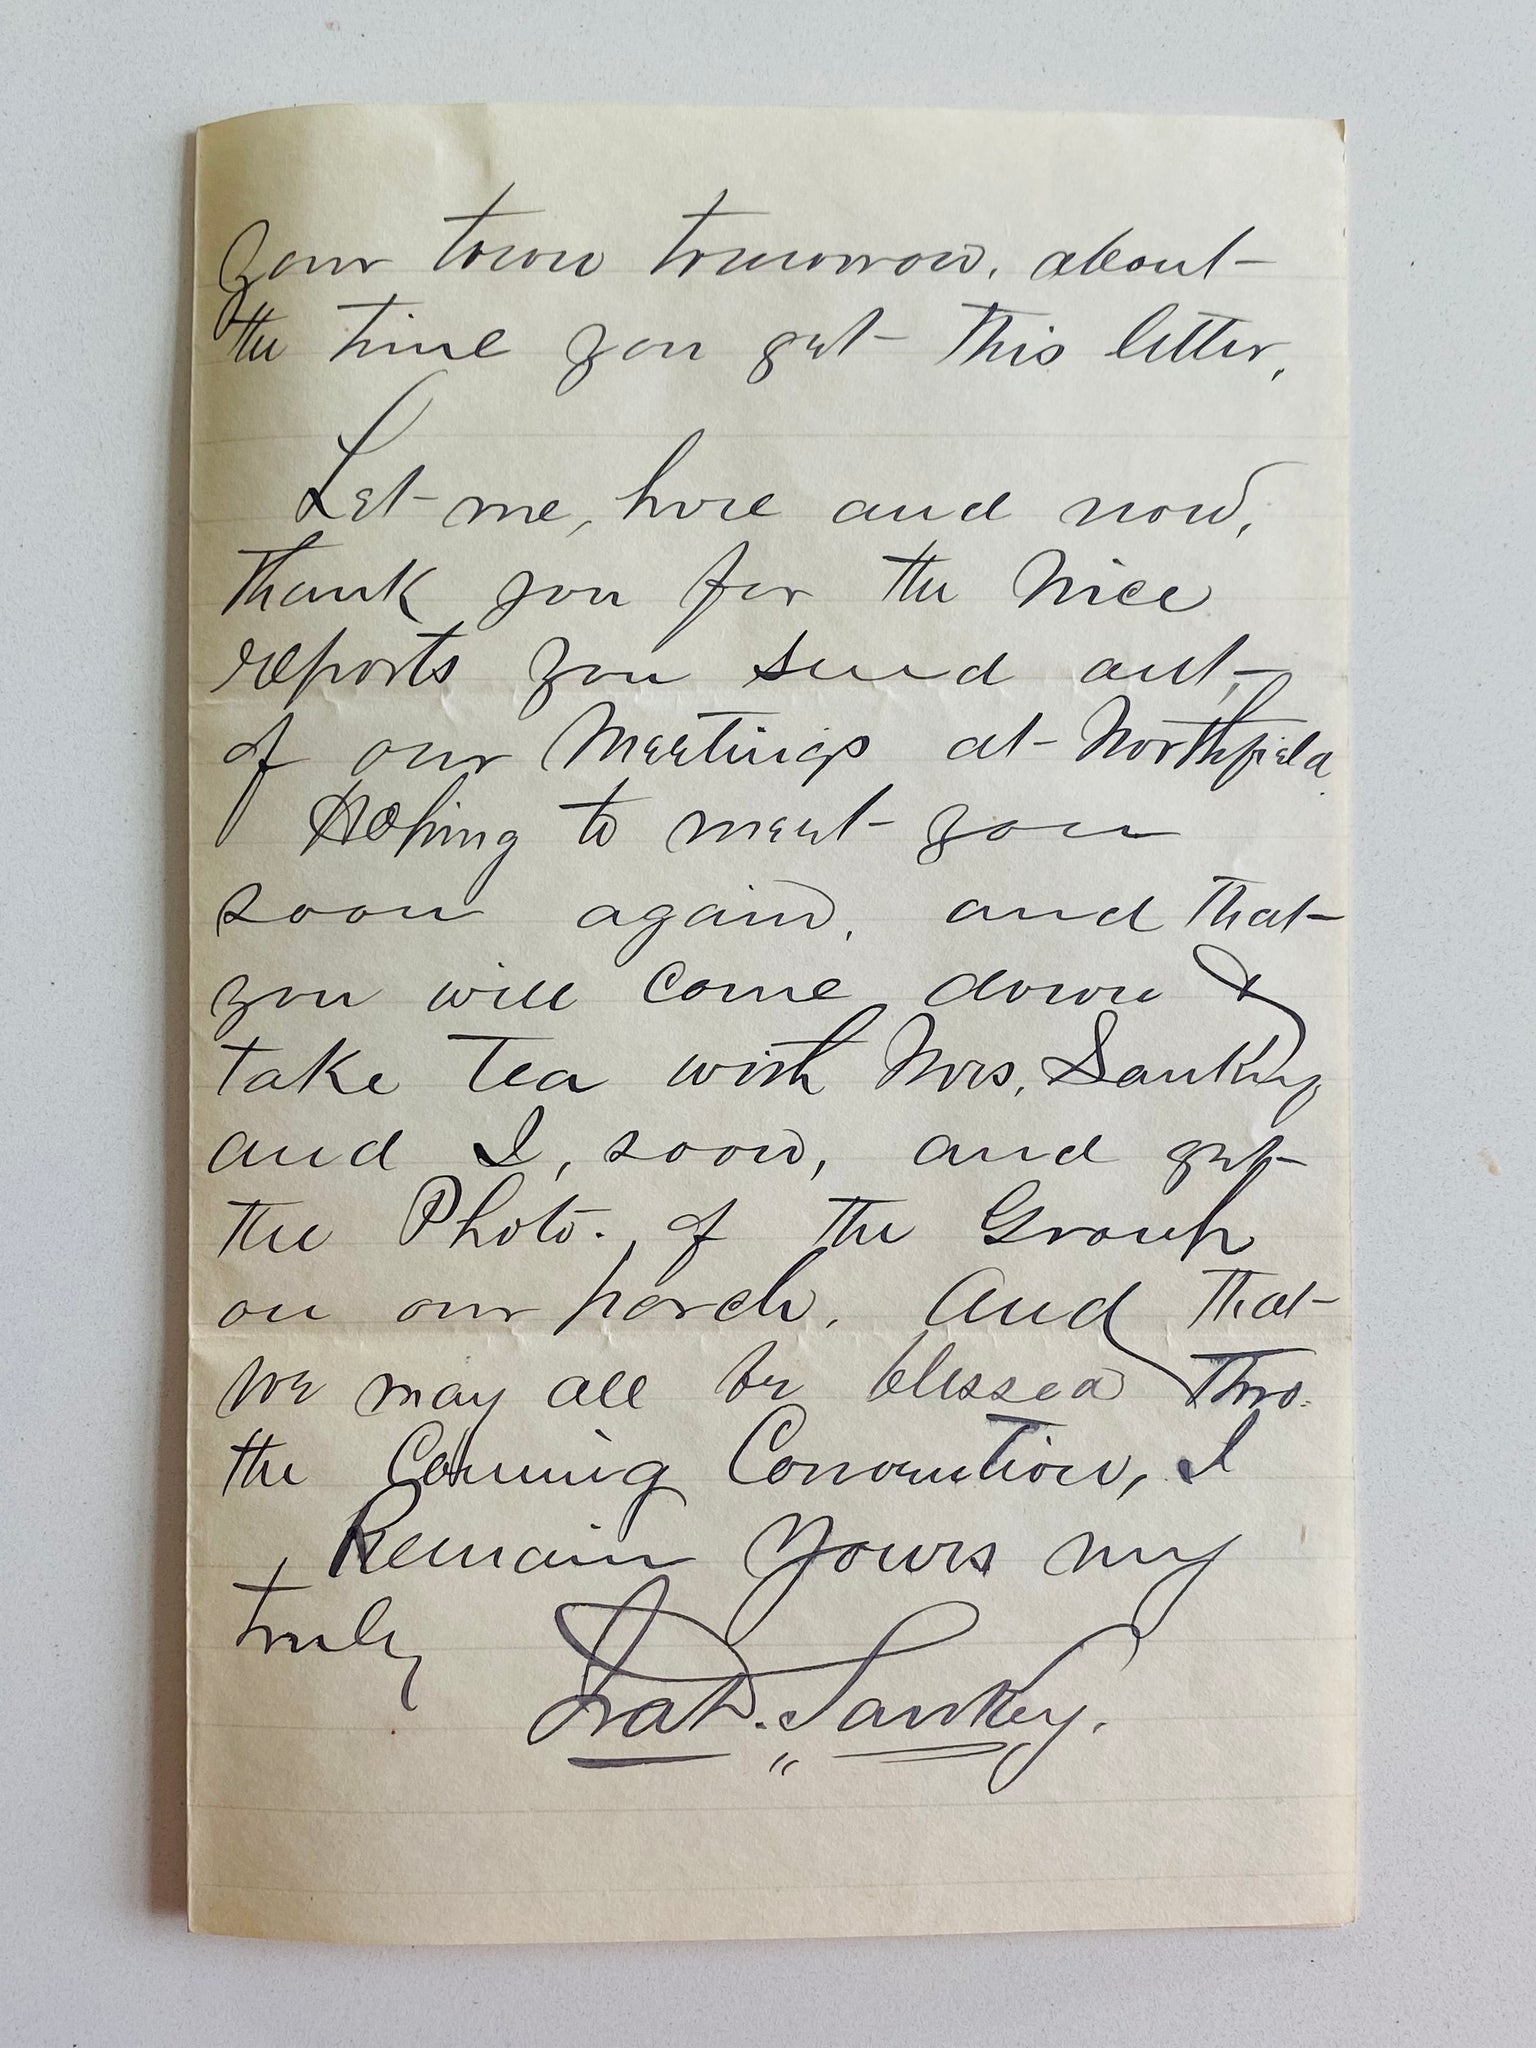 your town tomorrow, about
the time you get this letter.
Let me, here and now,
thank you for the nice
reports you send out,
of our Meetings at Northfield.
Hoping to meet you
soon again, and that
you will come down &
take tea with Mrs. Sankey
and I, soon, and get
the Photo. of the Group
on our porch. And that
we may all be blessed thro.
the Coming Convention, I
Remain Yours very
truly
Ira D. Sankey.